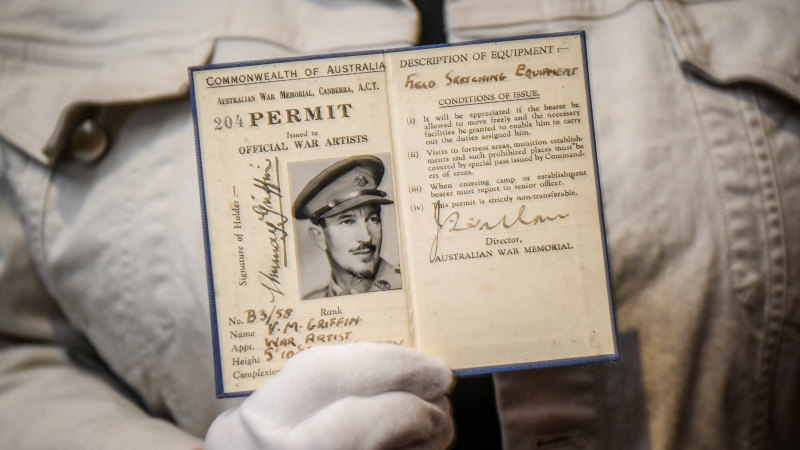 COMMONWEALTH OF AUSTRALIA
AUSTRALIAN WAR MEMORIAL, CANBERRA, A.C.T.
204 PERMIT
Issued to
OFFICIAL WAR ARTISTS
Signature of Holder :—
Murray Griffin
No. B3/58 Rank
Name V. M. GRIFFIN
Appt. WAR ARTIST
Height 5'10
Complexion
DESCRIPTION OF EQUIPMENT :—
FIELD SKETCHING EQUIPMENT
CONDITIONS OF ISSUE.
(i) It will be appreciated if the bearer be
allowed to move freely and the necessary
facilities be granted to enable him to carry
out the duties assigned him.
(ii) Visits to fortress areas, munition establish-
ments and such prohibited places must be
covered by special pass issued by Command-
ers of areas.
(iii) When entering camp or establishment
bearer must report to senior officer.
(iv) This permit is strictly non-transferable.
Director,
AUSTRALIAN WAR MEMORIAL.